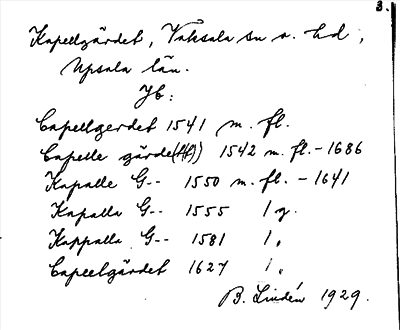 3.
Kapellgärdet, Vaksala sn o. hd,
Upsala län.
Jb:
Capellgerdet 1541 m. fl.
Capelle gärde(tt)) 1542 m. fl. - 1686
Kapalle G-- 1550 m. fl. - 1641
Kapalla G-- 1555 1 g.
Kappalla G-- 1581 1 "
Capeelgärdet 1627 1 "
B. Lindén 1929.